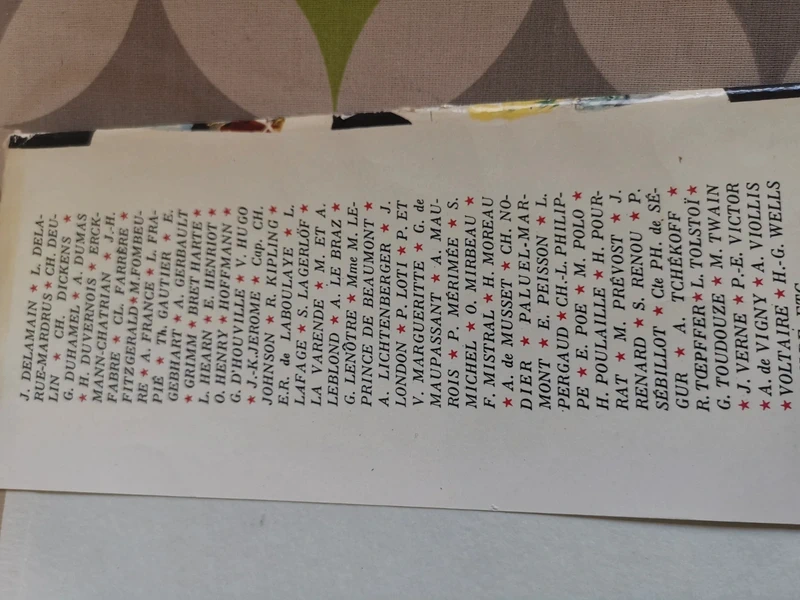 J. DELAMAIN ★ L. DELA-
RUE-MARDRUS ★ CH. DEU-
LIN ★ CH. DICKENS ★
G. DUHAMEL ★ A. DUMAS
★ H. DUVERNOIS ★ ERCK-
MANN-CHATRIAN ★ J.-H.
FABRE ★ CL. FARRÈRE ★
FITZGERALD ★ M. FOMBEU-
RE ★ A. FRANCE ★ L. FRA-
PIÉ ★ Th. GAUTIER ★ E.
GEBHART ★ A. GERBAULT
★ GRIMM ★ BRET HARTE ★
L. HEARN ★ E. HENRIOT ★
O. HENRY ★ HOFFMANN ★
G. D'HOUVILLE ★ V. HUGO
★ J.-K. JEROME ★ Cap. CH.
JOHNSON ★ R. KIPLING ★
E.R. de LABOULAYE ★ L.
LAFAGE ★ S. LAGERLÖF ★
LA VARENDE ★ M. ET A.
LEBLOND ★ A. LE BRAZ ★
G. LENÔTRE ★ Mme M. LE-
PRINCE DE BEAUMONT ★
A. LICHTENBERGER ★ J.
LONDON ★ P. LOTI ★ P. ET
V. MARGUERITTE ★ G. de
MAUPASSANT ★ A. MAU-
ROIS ★ P. MÉRIMÉE ★ S.
MICHEL ★ O. MIRBEAU ★
F. MISTRAL ★ H. MOREAU
★ A. de MUSSET ★ CH. NO-
DIER ★ PALUEL-MAR-
MONT ★ E. PEISSON ★ L.
PERGAUD ★ CH.-L. PHILIP-
PE ★ E. POE ★ M. POLO ★
H. POULAILLE ★ H. POUR-
RAT ★ M. PRÉVOST ★ J.
RENARD ★ S. RENOU ★ P.
SÉBILLOT ★ Cte PH. de SÉ-
GUR ★ A. TCHÉKOFF ★
R. TŒPFFER ★ L. TOLSTOÏ ★
G. TOUDOUZE ★ M. TWAIN
★ J. VERNE ★ P.-E. VICTOR
★ A. de VIGNY ★ A. VIOLLIS
★ VOLTAIRE ★ H.-G. WELLS
ETC.